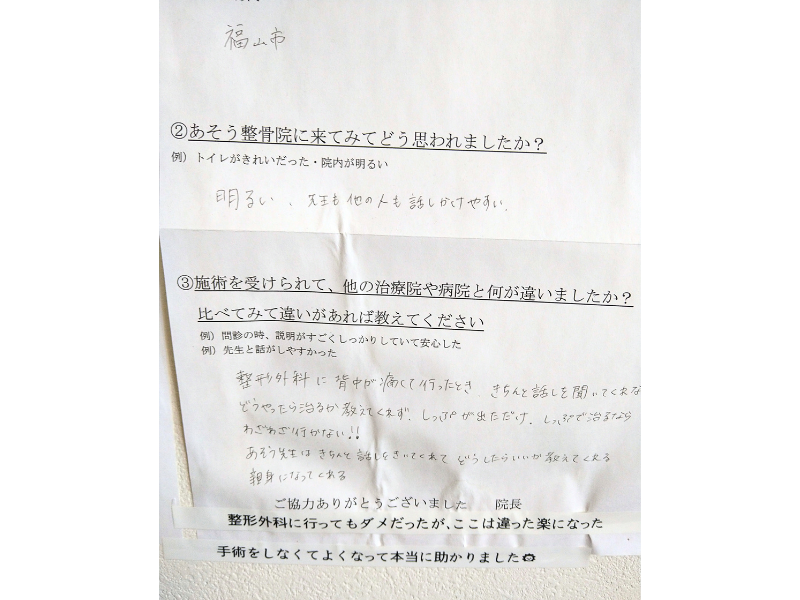 福山市
②あそう整骨院に来てみてどう思われましたか？
例）トイレがきれいだった・院内が明るい
明るい、先生も他の人も話しかけやすい。
③施術を受けられて、他の治療院や病院と何が違いましたか？
比べてみて違いがあれば教えてください
例）問診の時、説明がすごくしっかりしていて安心した
例）先生と話がしやすかった
整形外科に背中が痛くて行ったとき、きちんと話しを聞いてくれな
どうやったら治るか教えてくれず、しっぷが出ただけ、しっぷで治るなら
わざわざ行かない!!
あそう先生はきちんと話しをきいてくれてどうしたらいいか教えてくれる
親身になってくれる
ご協力ありがとうございました　院長
整形外科に行ってもダメだったが、ここは違った楽になった
手術をしなくてよくなって本当に助かりました